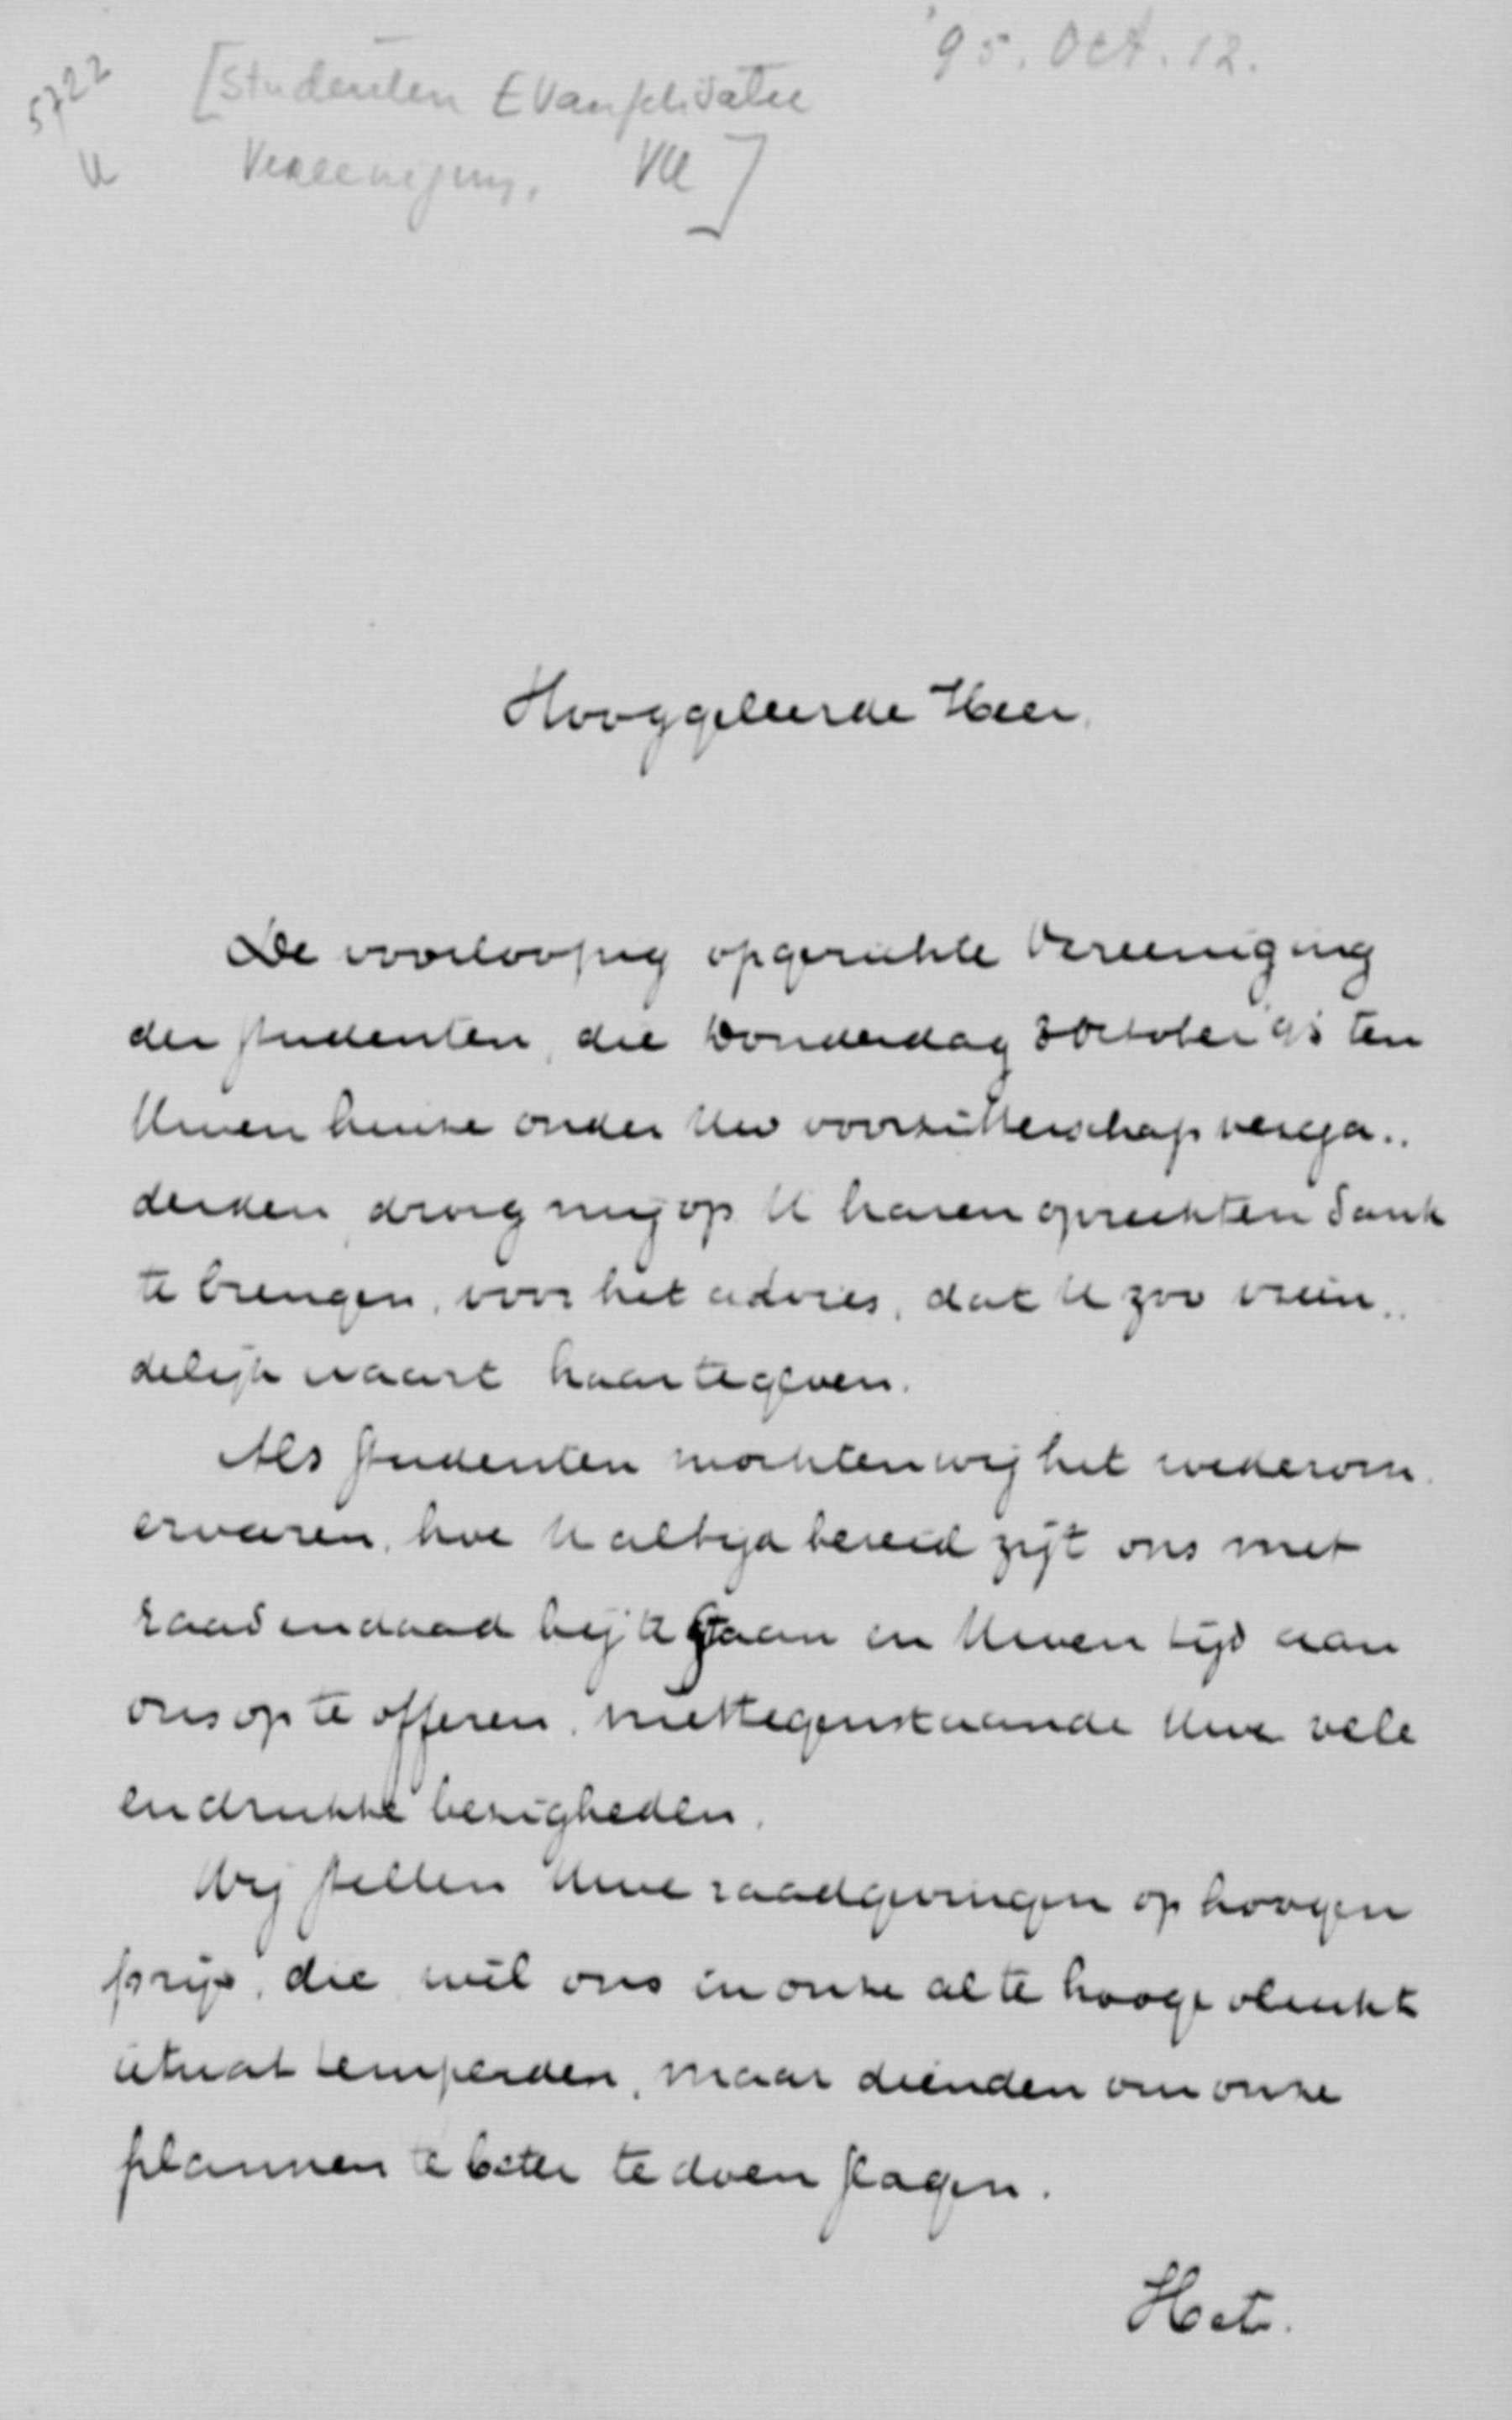 '95. Oct. 12.
5722
[Studenten Evangelisatie
Vereeniging. VU]
Hooggeleerde Heer,
De voorloopig opgerichte Vereeniging
der studenten, die Donderdag 3 October '95 ten
Uwen huize onder Uw voorzitterschap verga..
derden, droeg mij op U haren oprechten dank
te brengen, voor het advies, dat U zoo vrien..
delijk waart haar te geven.
Als studenten mochten wij het wederom
ervaren, hoe U altijd bereid zijt ons met
raad en daad bij te staan en Uwen tijd aan
ons op te offeren, niettegenstaande Uwe vele
en drukke bezigheden.
Wij stellen Uwe raadgevingen op hoogen
prijs, die wel ons in onze al te hooge vlucht
ietwat temperden, maar dienden om onze
plannen te beter te doen slagen.
Het.